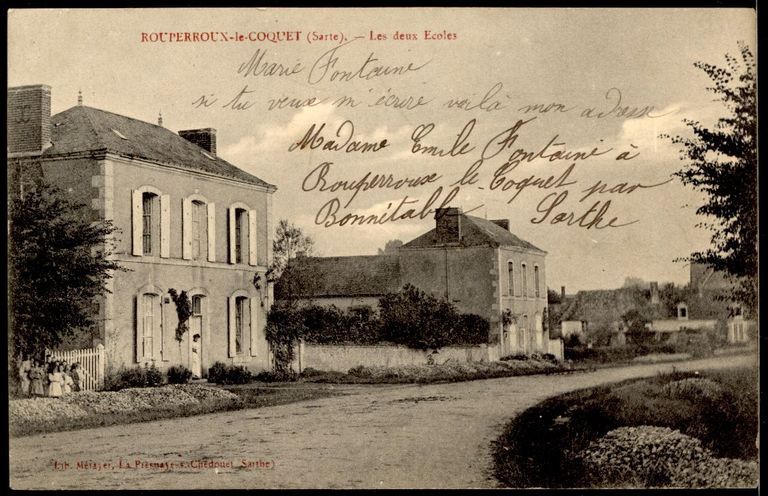 ROUPERROUX-le-COQUET (Sarte). — Les deux Ecoles
Marie Fontaine
si tu veux m'écrire voilà mon adresse
Madame Emile Fontaine à
Rouperroux le Coquet par
Bonnétable Sarthe
Lib. Métayer, La Presnaye-s-Chédouet Sarthe)